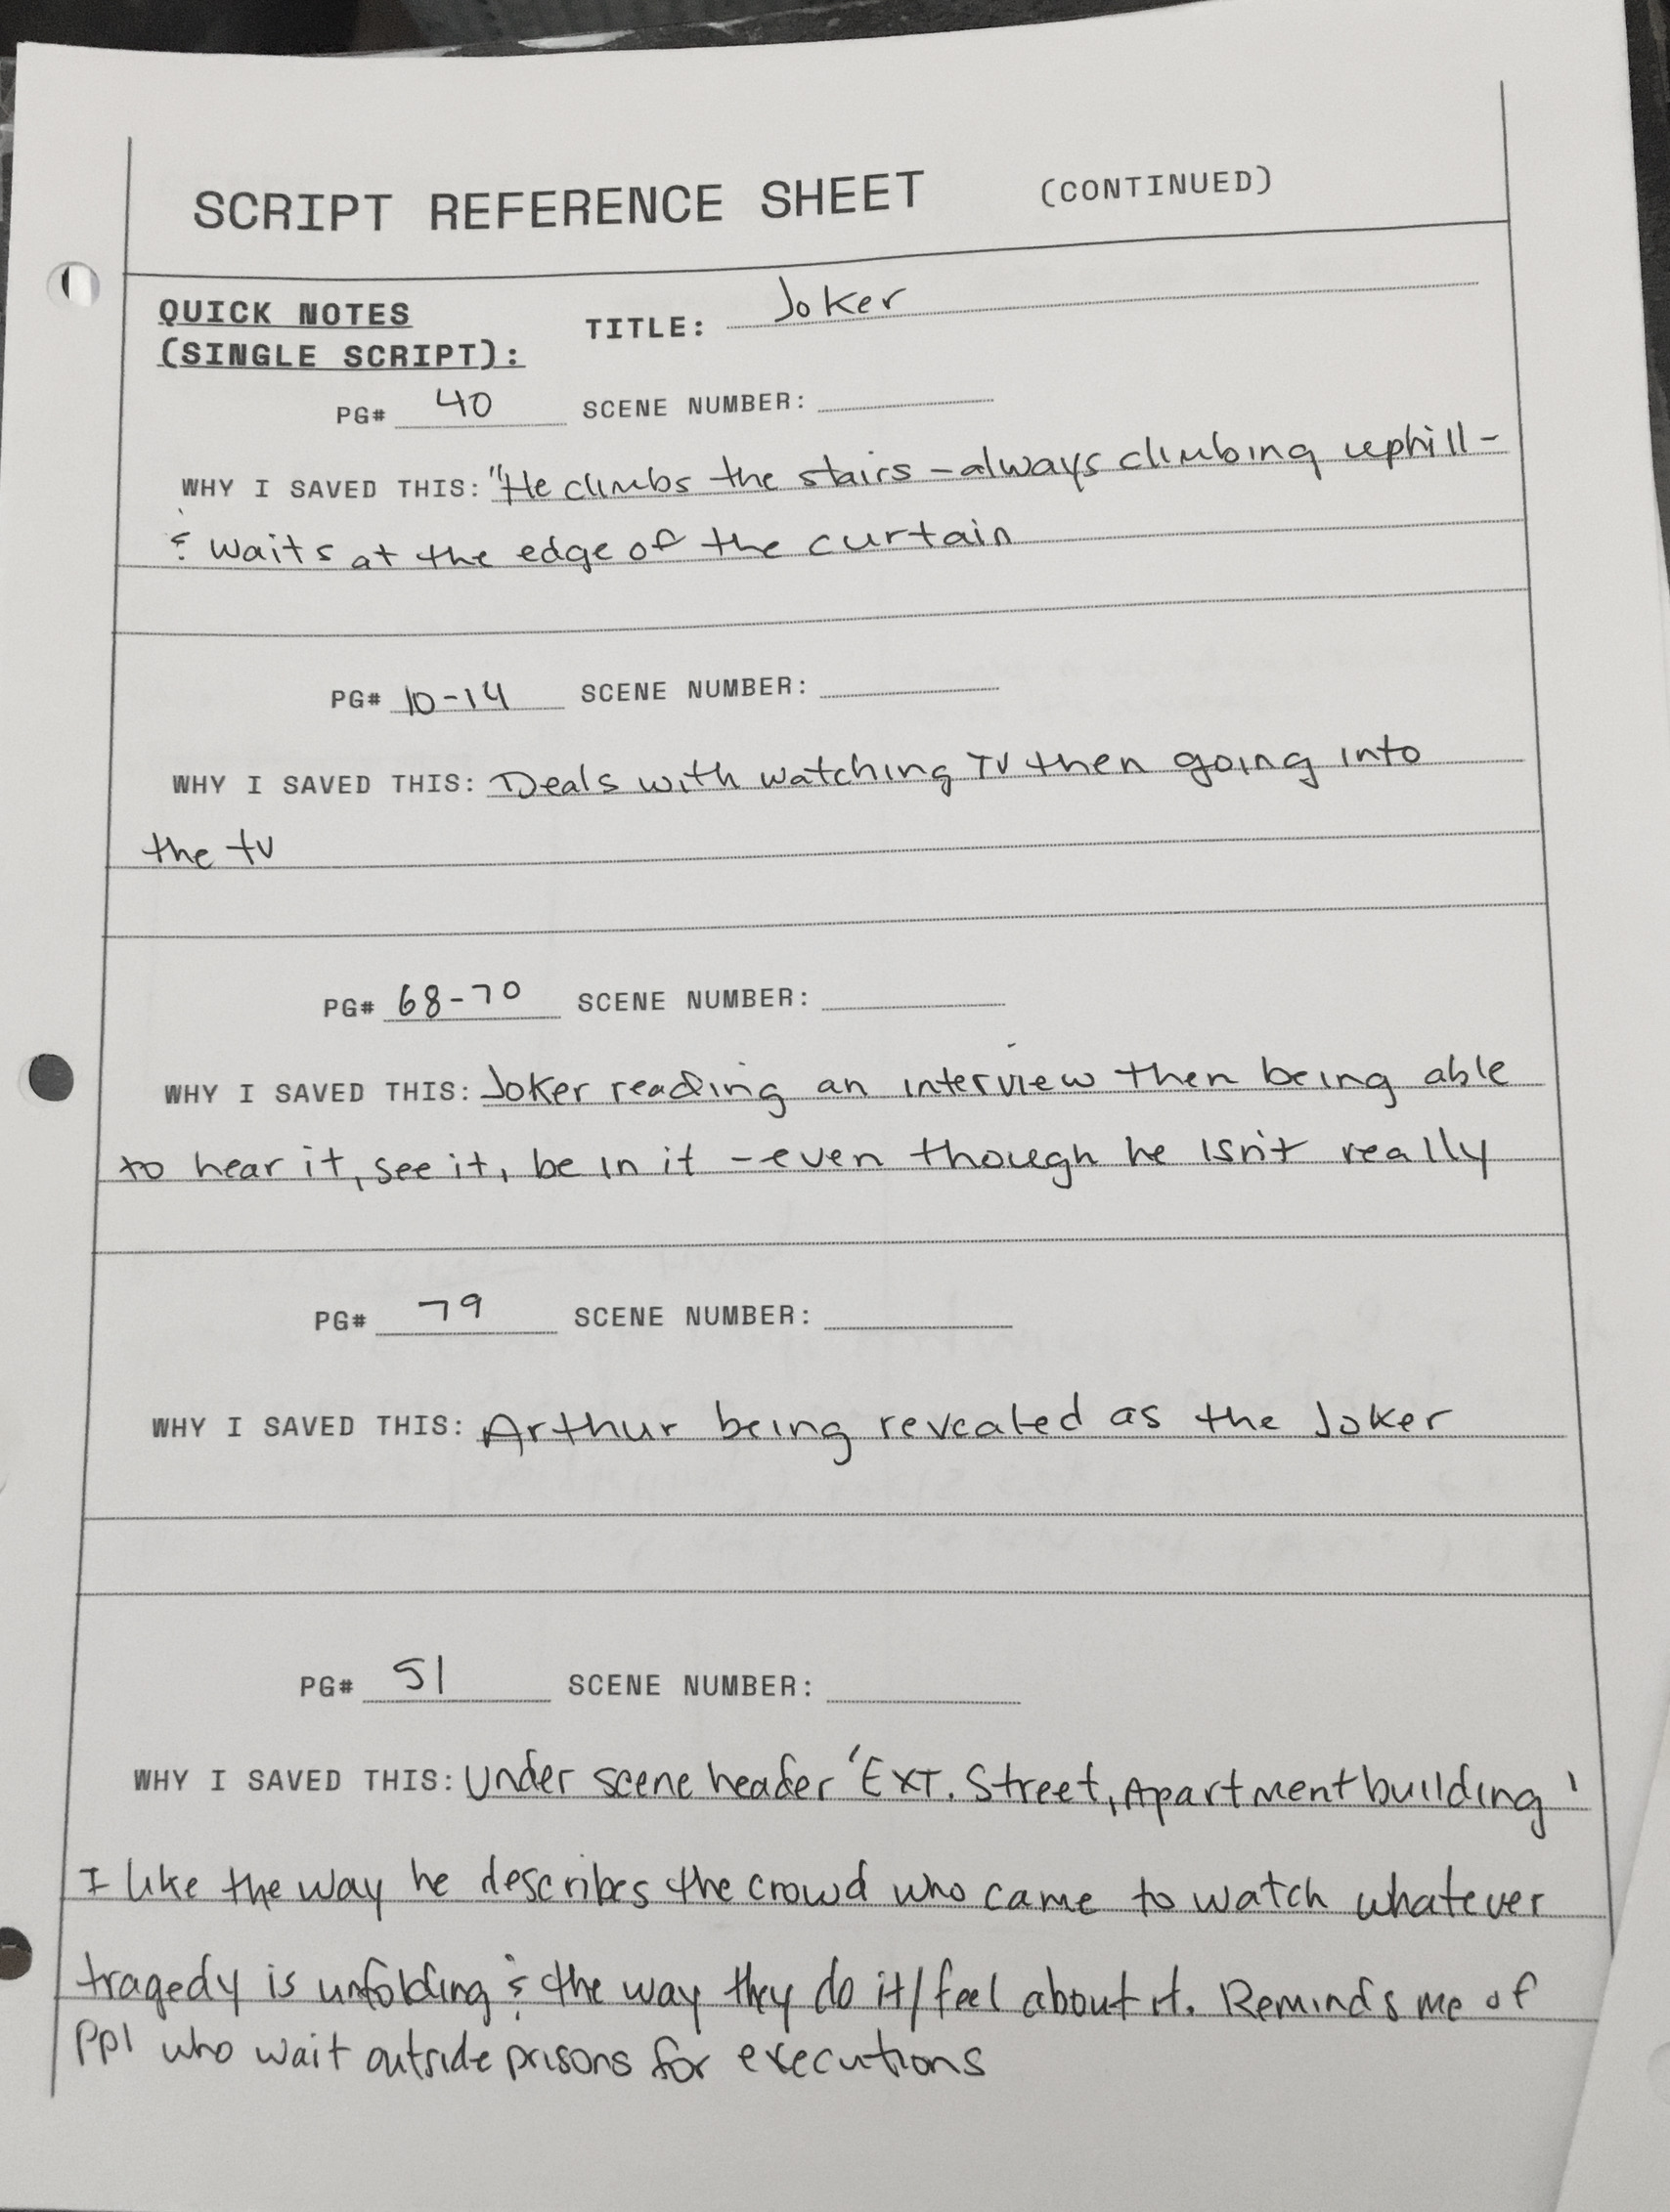 SCRIPT REFERENCE SHEET (CONTINUED)
QUICK NOTES
(SINGLE SCRIPT):
TITLE: Joker
PG# 40 SCENE NUMBER:
WHY I SAVED THIS: "He climbs the stairs - always climbing uphill -
& waits at the edge of the curtain
PG# 10-14 SCENE NUMBER:
WHY I SAVED THIS: Deals with watching TV then going into
the tv
PG# 68-70 SCENE NUMBER:
WHY I SAVED THIS: Joker reading an interview then being able
to hear it, see it, be in it - even though he isn't really
PG# 79 SCENE NUMBER:
WHY I SAVED THIS: Arthur being revealed as the Joker
PG# 51 SCENE NUMBER:
WHY I SAVED THIS: Under scene header 'EXT. Street, Apartment building'
I like the way he describes the crowd who came to watch whatever
tragedy is unfolding & the way they do it/feel about it. Reminds me of
ppl who wait outside prisons for executions